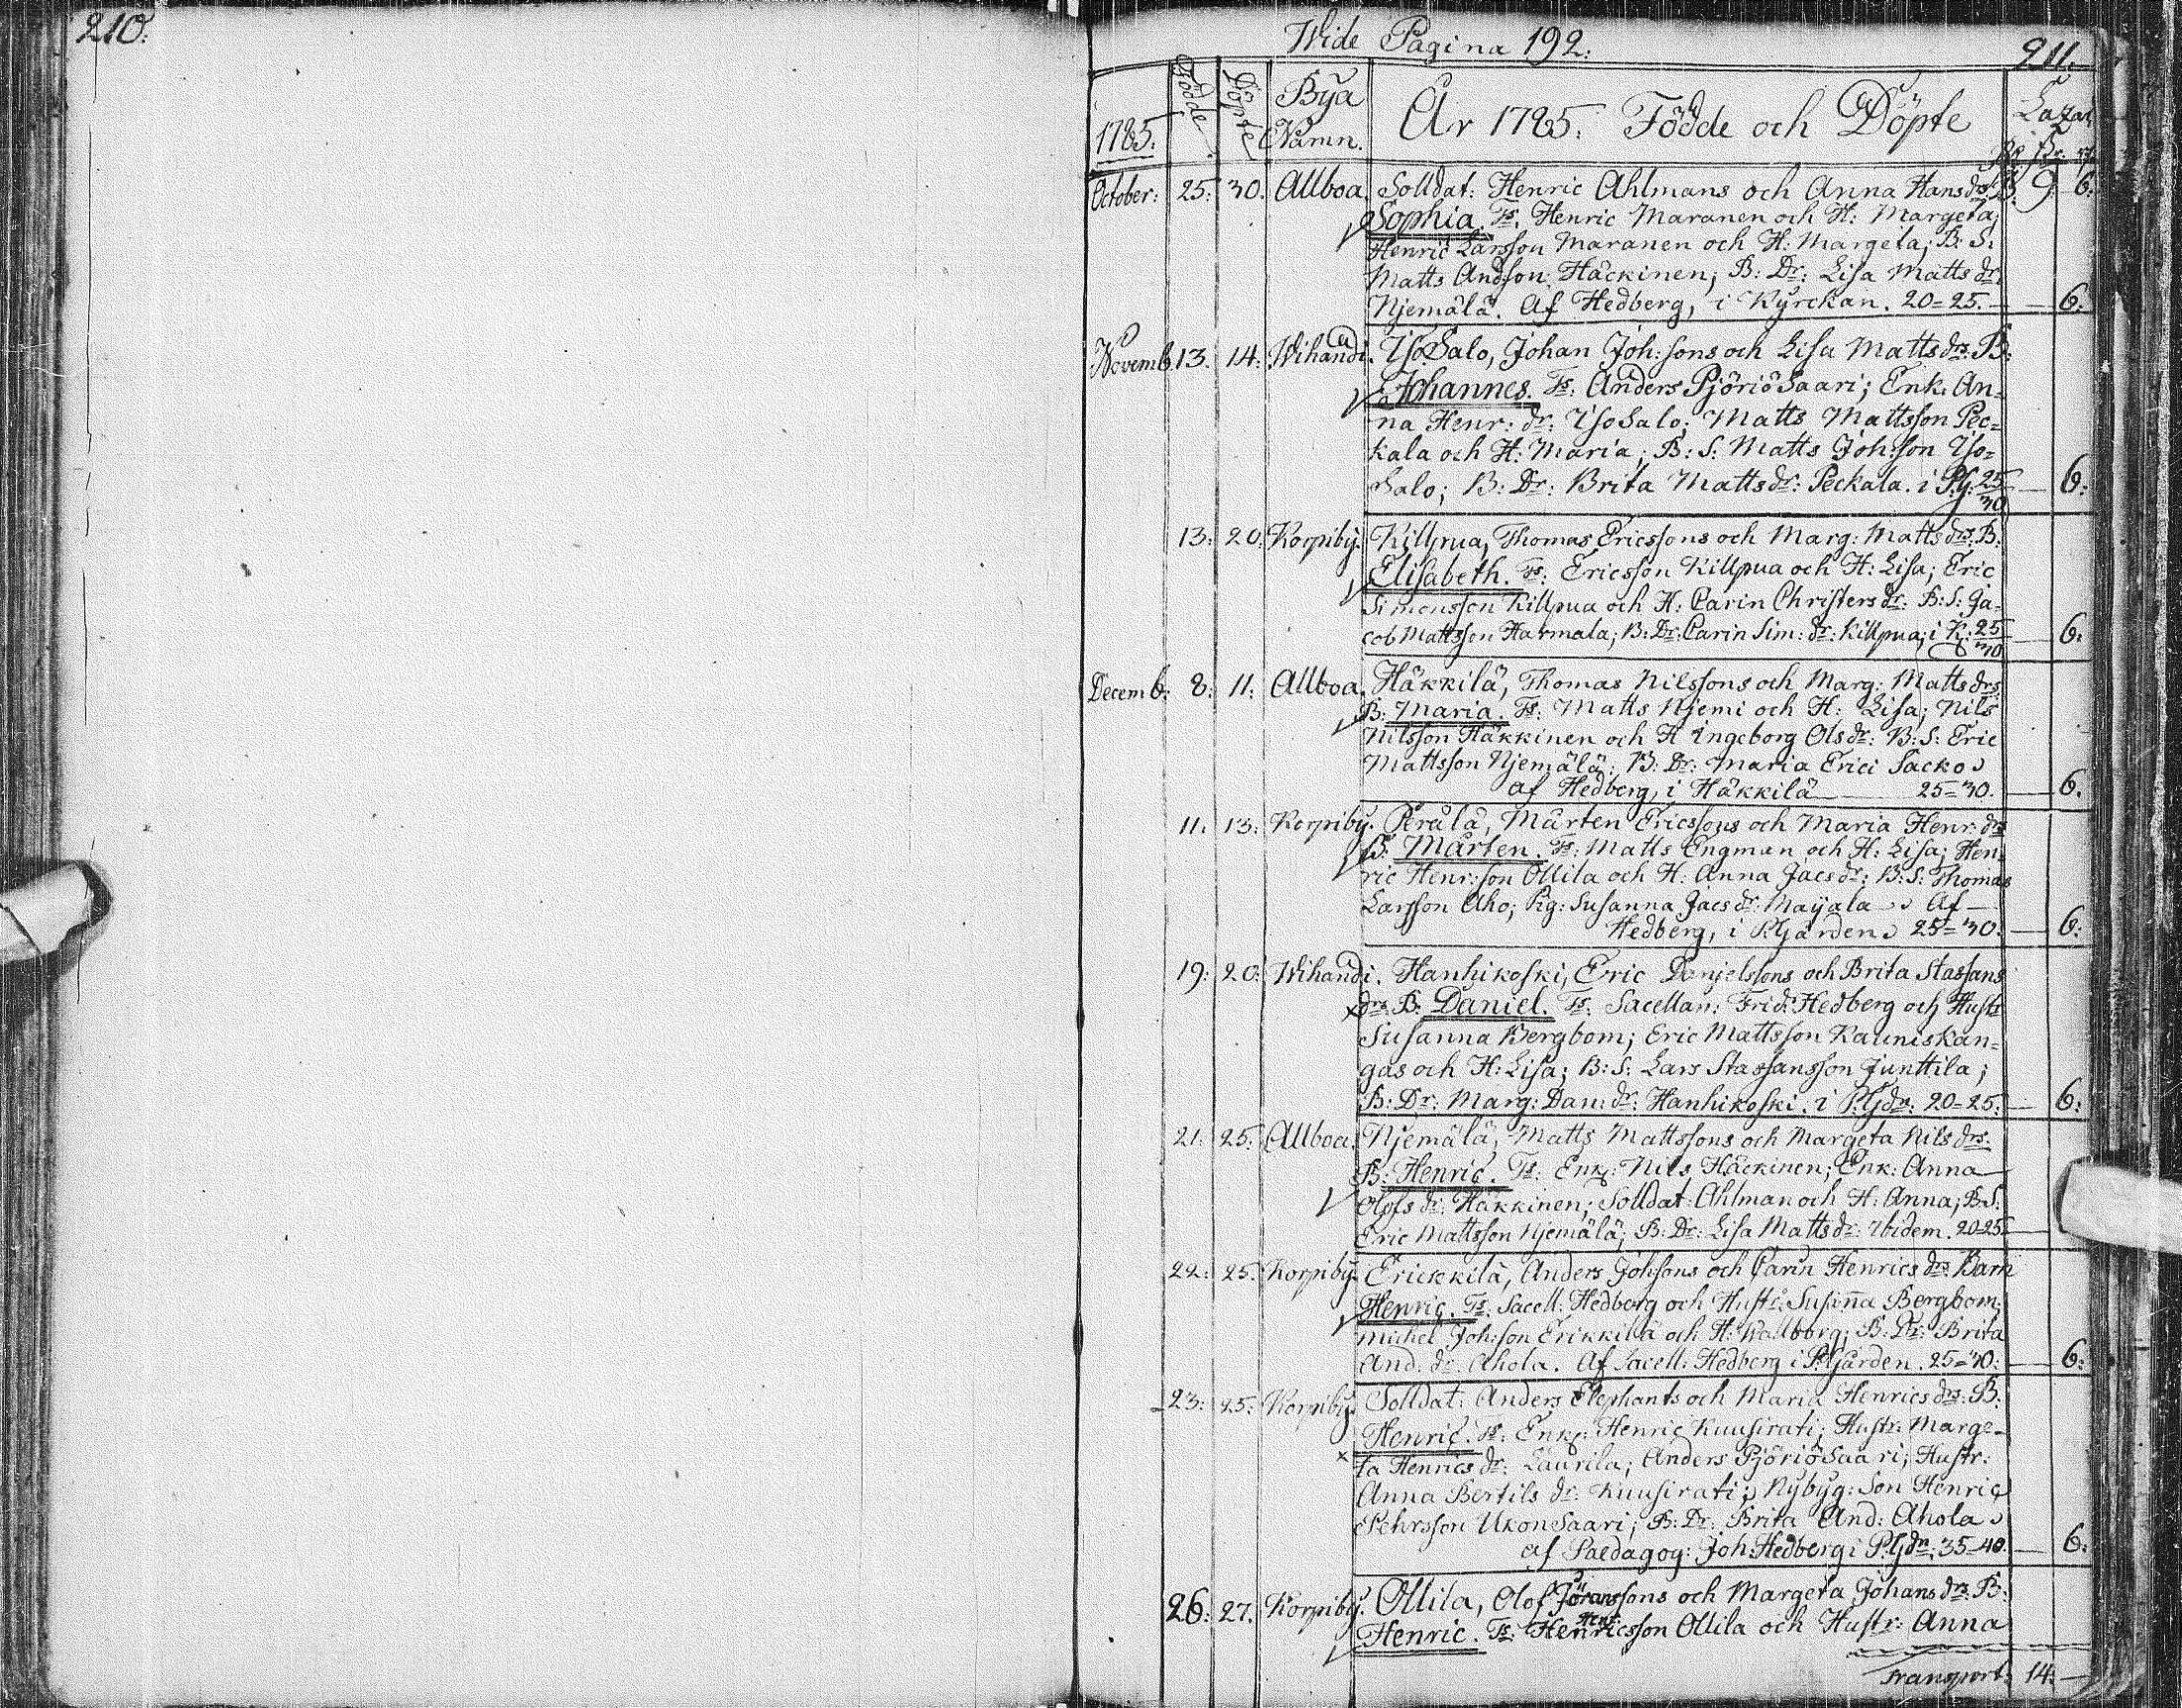 210.
Wide Pagina 192.
211.
1785. Födde Döpte Bya Namn. År 1785. Födde och Döpte Lazar.
October: 25: 30. Allboa. Solldat: Henric Ahlmans och Anna Hansdrs B. 9 6:
Sophia. Ts. Henric Maranen och H: Margeta;
Henric Larsson Maranen och H: Margeta; B: S:
Matts Andsson Häckinen; B: Dr: Lisa Matts dr
Njemälä. Af Hedberg, i Kyrckan. 20=25. 6:
Novemb. 13. 14: Wihandi. YsoSalo, Johan Joh:sons och Lisa Mattsdrs B:
Johannes. Ts: Anders PjöriöSaari; Enk: An=
na Henr: dr: YsoSalo; Matts Mattsson Pec=
kala och H: Maria; B: S: Matts Joh:son Yso=
Salo; B: Dr: Brita Mattsdr: Peckala. i P.g: 25/30 6:
13: 20: Korpiby. Killpua, Thomas Ericssons och Marg: Mattsdrs: B:
Elisabeth. Ts: Ericsson Killpua och H: Lisa; Eric
Simonsson Killpua och H: Carin Christersdr: B: S: Ja-
cob Mattsson Harmala; B: Dr: Carin Sim: dr: Killpua; i K: 25/30 6:
Decemb: 8: 11: Allboa. Häkkilä, Thomas Nilssons och Marg: Mattsdrs:
B: Maria. Ts: Matts Njemi och H: Lisa; Nils
Nilsson Häkkinen och H Ingeborg Olsdr: B: S: Eric
Mattsson Njemälä; B: Dr: Maria Erici Sacko
af Hedberg, i Häkkilä 25=30. 6.
11: 13: Korpiby. Perälä, Mårten Ericssons och Maria Henr: drs
B: Mårten. Ts: Matts Engman och H: Lisa; Hen=
ric Henr:son Ollila och H: Anna Jacsdr: B: S: Thomas
Larsson Aho; Pig: Susanna Jacsdr: Mayala Af
Hedberg, i P.Gården 25=30: 6:
19: 20: Wihandi. Hanhikoski, Eric Danjelssons och Brita Stassans
drs B: Daniel. Ts: Sacellan: Frid: Hedberg och Hustr
Susanna Bergbom; Eric Mattsson Kauniskan=
gas och H: Lisa; B: S: Lars Stassansson Junttila;
B: Dr: Marg: Dan: dr: Hanhikoski. i P:Gdr: 20-25: 6:
21: 25: Allboa. Njemälä, Matts Mattssons och Margeta Nilsdrs:
B: Henric. Ts: Enkl: Nils Häckinen; Enk: Anna
Olofsdr: Häkkinen; Solldat: Ahlman och H: Anna; B: S:
Eric Mattsson Njemälä; B: Dr: Lisa Mattsdr: Ibidem. 20-25
22: 25. Korpiby. Erickkilä, Anders Joh:sons och Carin Henricsdrs: Barn
Henric. Ts. Sacell: Hedberg och Hustr: Susanna Bergbom;
Michel Joh:son Erikkilä och H: Wallborg; B: Dr: Brita
And: dr: Ahola. Af Sacell: Hedberg i P:Gården. 25=30: 6:
23: 25: Korpiby. Solldat: Anders Elephants och Maria Henricsdrs: B:
Henric. Ts: Enkl: Henric Kuusirati; Hustr: Marge-
ta Henricsdr: Laurila; Anders PjöriöSaari; Hustr:
Anna Bertils dr: Kuusirati; Nybyg: Son Henric
Pehrsson UkonSaari; B: Dr: Brita And: Ahola
af Paedagog: Joh: Hedberg i P:Gdn: 35-40. 6:
26: 27. Korpiby. Ollila, Olof Jöranssons och Margeta Johansdrs: B:
Henric. Ts: Henr: Henricsson Ollila och Hustr: Anna
Transport: 14: